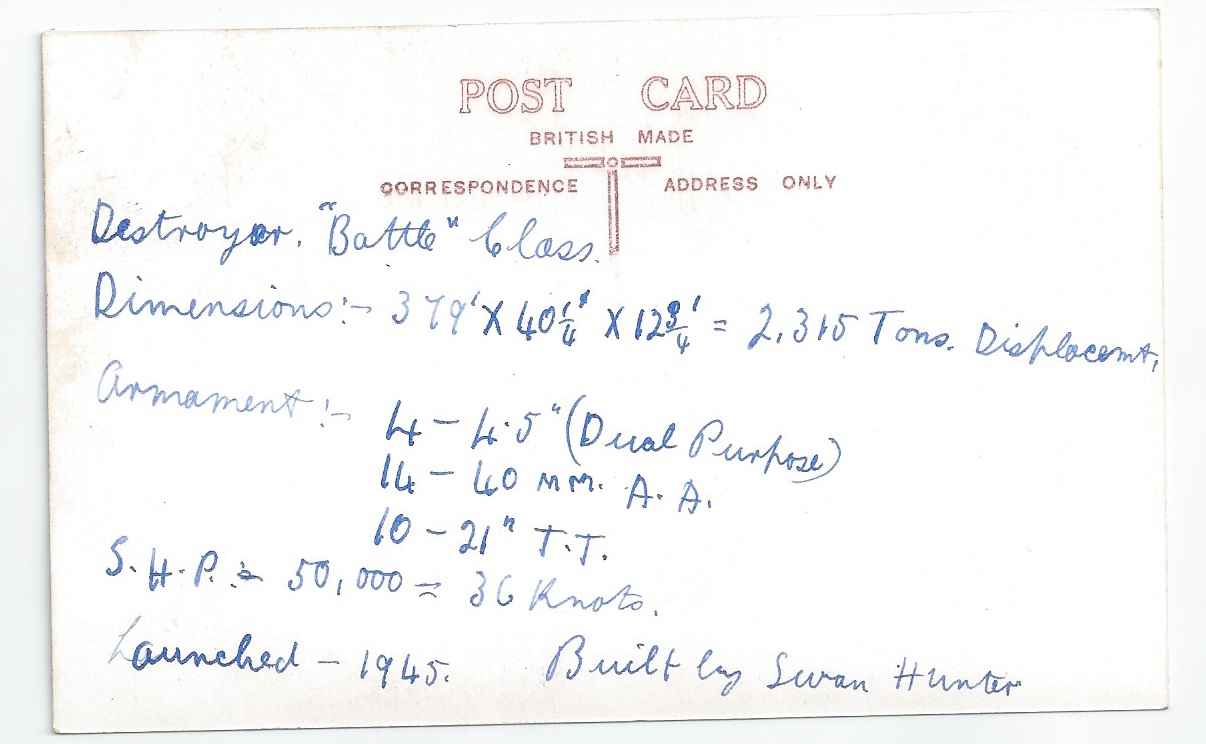 POST CARD
BRITISH MADE
CORRESPONDENCE ADDRESS ONLY
Destroyer. "Battle" Class.
Dimensions:- 379' X 40¼' X 12¾' = 2,315 Tons. Displacemt,
Armament:-
4 - 4.5" (Dual Purpose)
14 - 40 MM. A.A.
10 - 21" T.T.
S.H.P. = 50,000 = 36 Knots.
Launched - 1945. Built by Swan Hunter